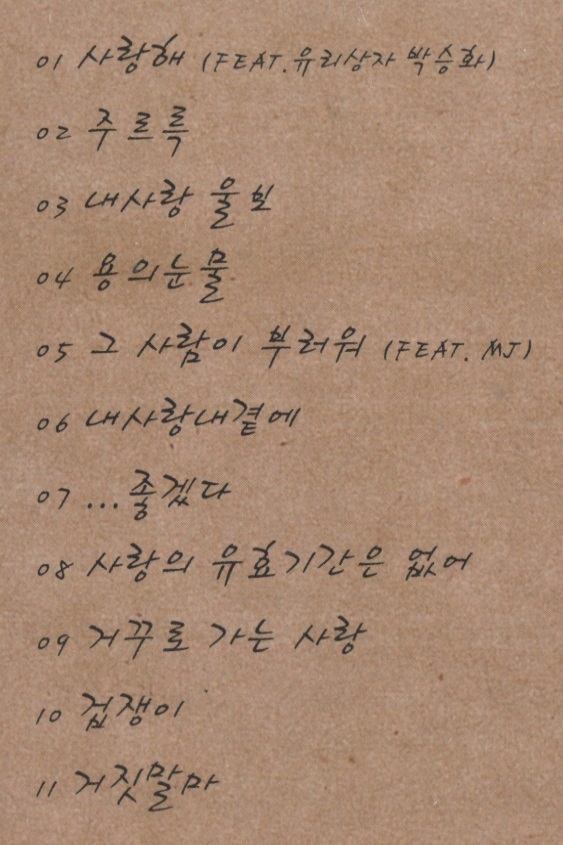 01 사랑해 (FEAT.유리상자 박승화)
02 주르륵
03 내사랑 울보
04 용의눈물
05 그 사람이 부러워 (FEAT. MJ)
06 내사랑내곁에
07 ...좋겠다
08 사랑의 유효기간은 없어
09 거꾸로 가는 사랑
10 겁쟁이
11 거짓말마